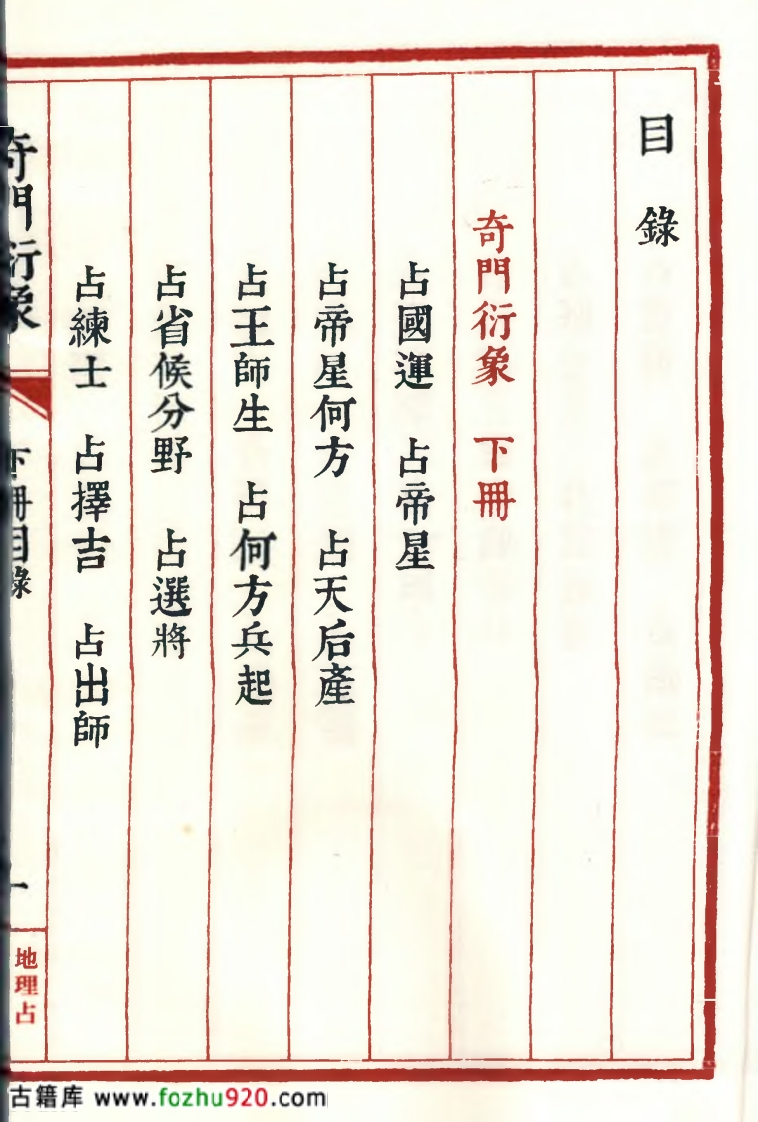 目錄
奇門衍象 下冊
占國運 占帝星
占帝星何方 占天后產
占王師生 占何方兵起
占省候分野 占選將
占練士 占擇吉 占出師
奇門衍象
下冊目錄
一
地理占
古籍库 www.fozhu920.com